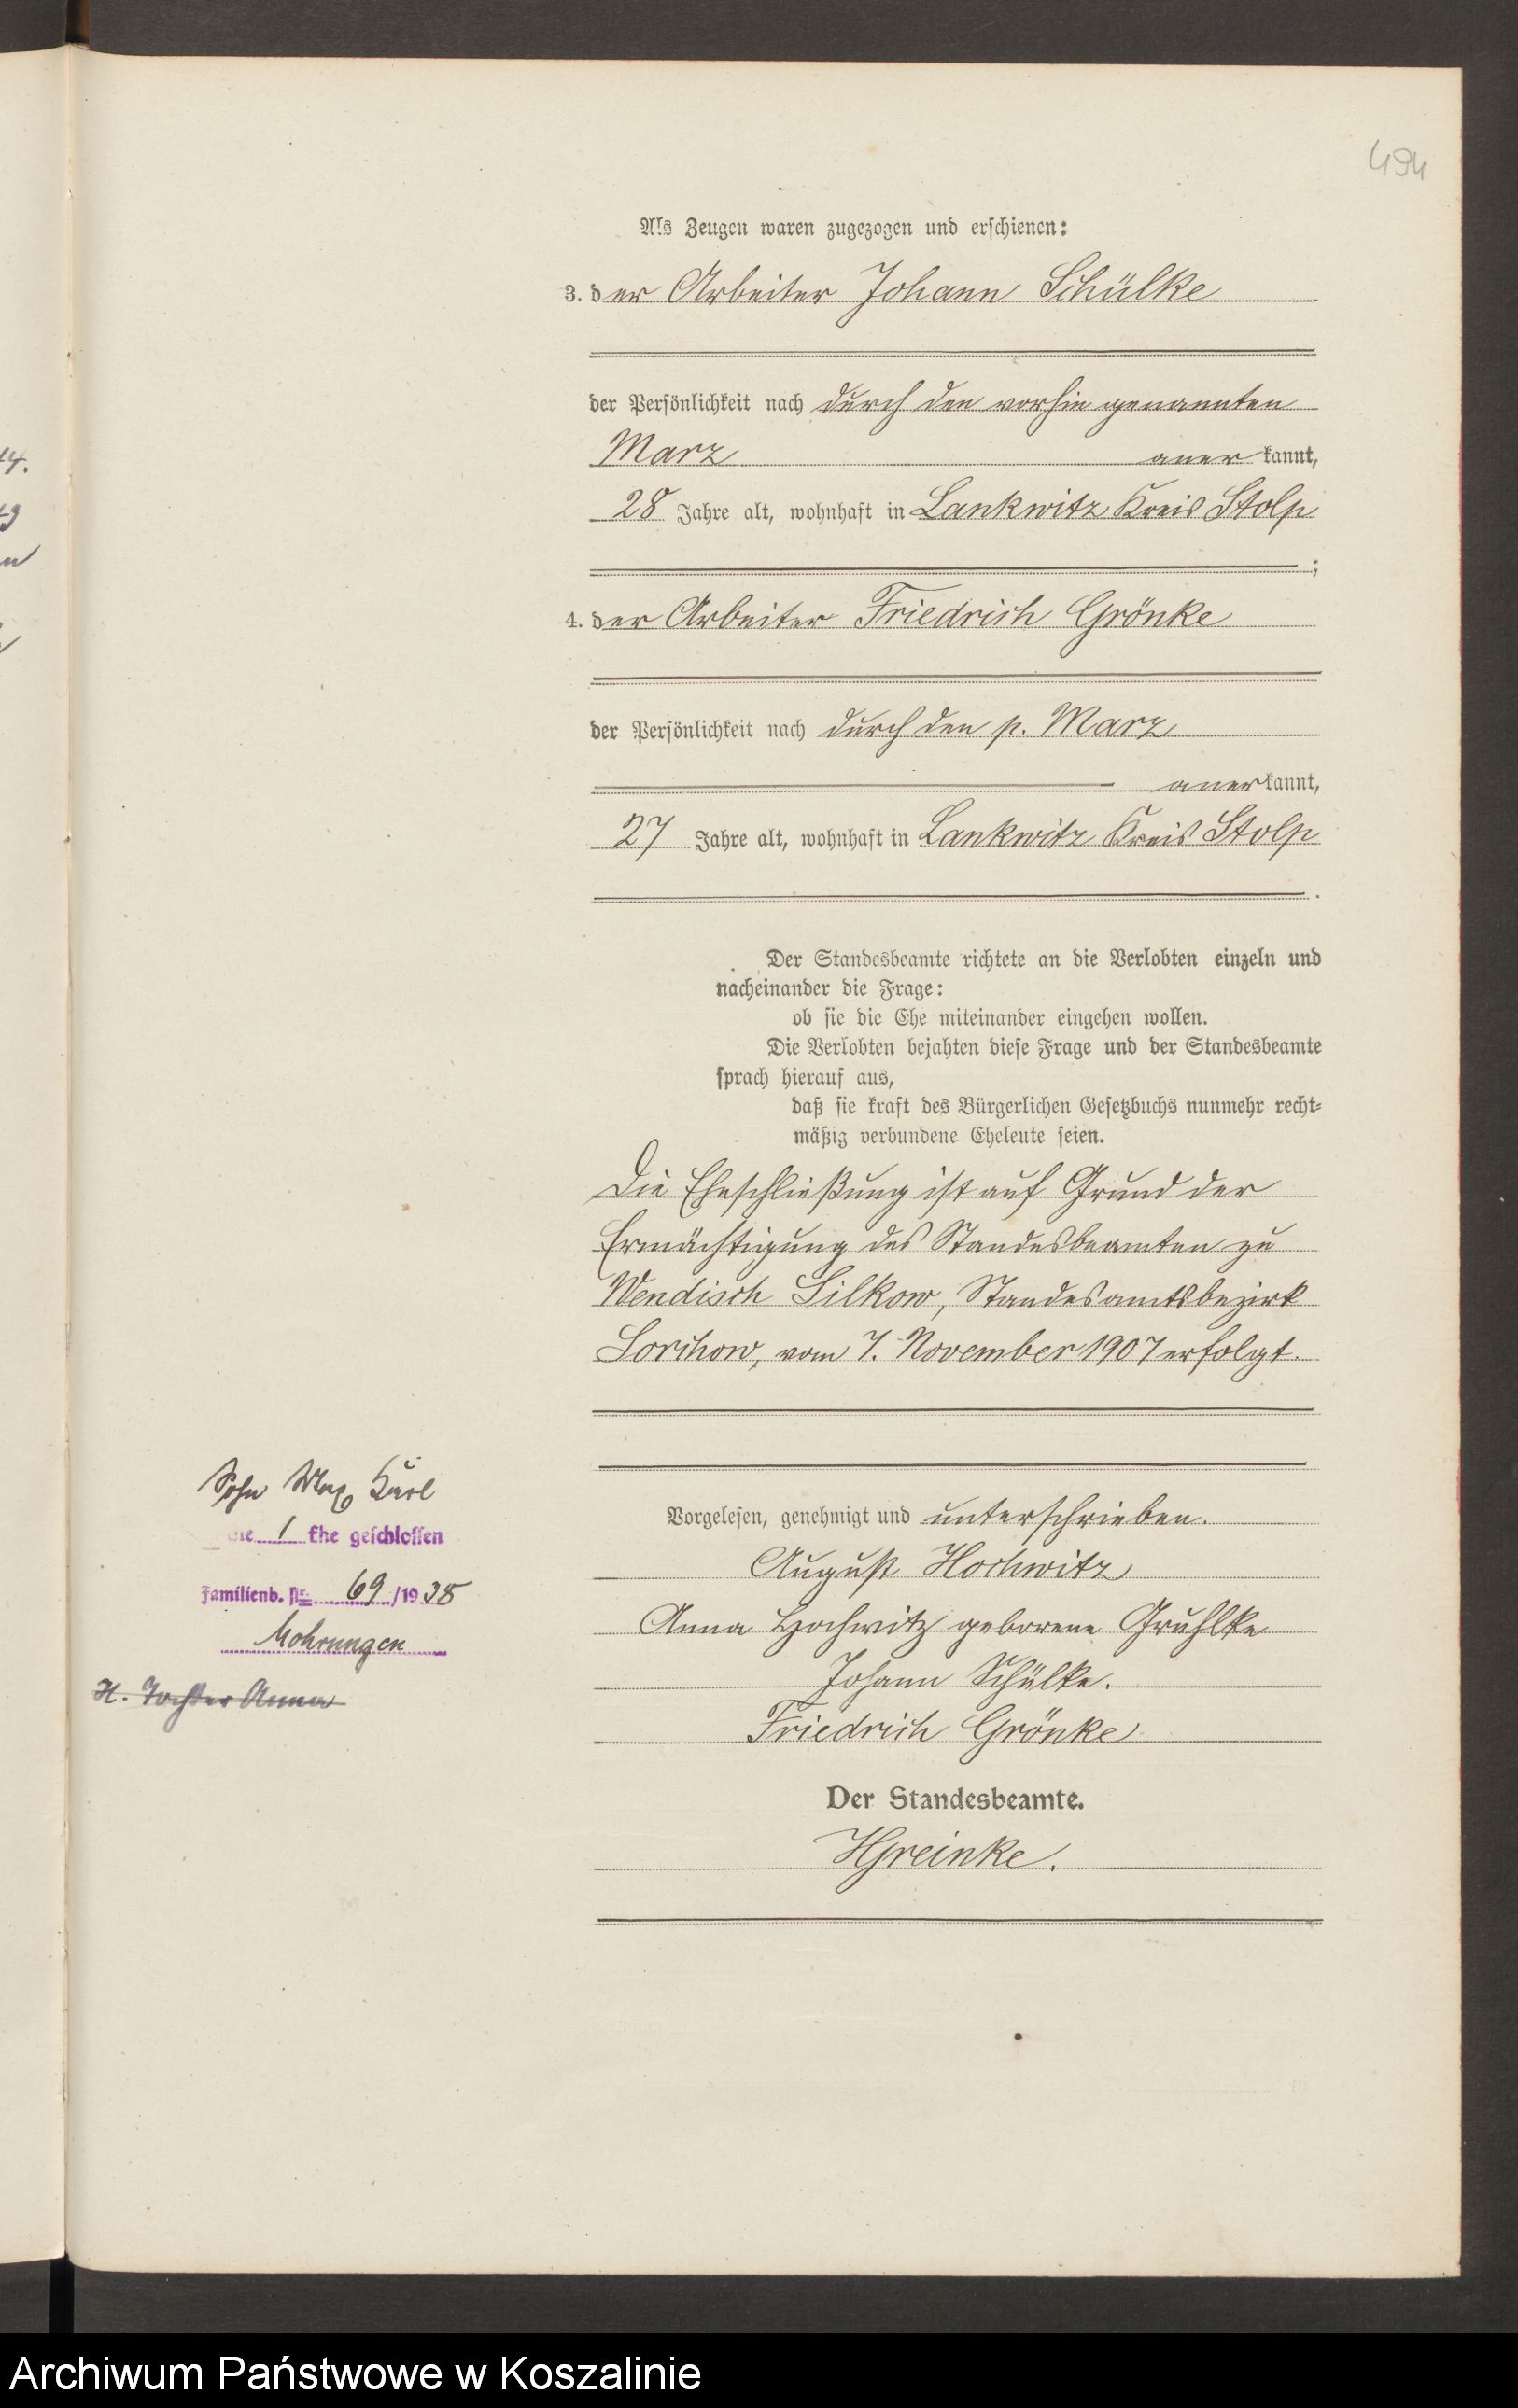 494
Als Zeugen waren zugezogen und erschienen:
3. der Arbeiter Johann Schülke
der Persönlichkeit nach durch den vorhin genannten
Marz anerkannt,
28 Jahre alt, wohnhaft in Lankwitz Kreis Stolp
;
4. der Arbeiter Friedrich Grönke
der Persönlichkeit nach durch den p. Marz
anerkannt,
27 Jahre alt, wohnhaft in Lankwitz Kreis Stolp
.
Der Standesbeamte richtete an die Verlobten einzeln und
nacheinander die Frage:
ob sie die Ehe miteinander eingehen wollen.
Die Verlobten bejahten diese Frage und der Standesbeamte
sprach hierauf aus,
daß sie kraft des Bürgerlichen Gesetzbuchs nunmehr recht-
mäßig verbundene Eheleute seien.
Die Eheschließung ist auf Grund der
Ermächtigung des Standesbeamten zu
Wendisch Silkow, Standesamtsbezirk
Sorchow, vom 7. November 1907 erfolgt.
Vorgelesen, genehmigt und unterschrieben.
August Hochwitz
Anna Hochwitz geborene Gruhlke
Johann Schülke.
Friedrich Grönke
Der Standesbeamte.
HGreinke.
Sohn Max Karl
die 1 Ehe geschlossen
Familienb. Nr. 69/1938
Mohrungen
H. Tochter Anna
14.
Archiwum Państwowe w Koszalinie